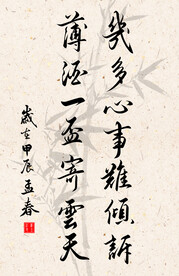 幾多心事難傾訴
薄酒一盃寄雲天
歲在甲辰孟春